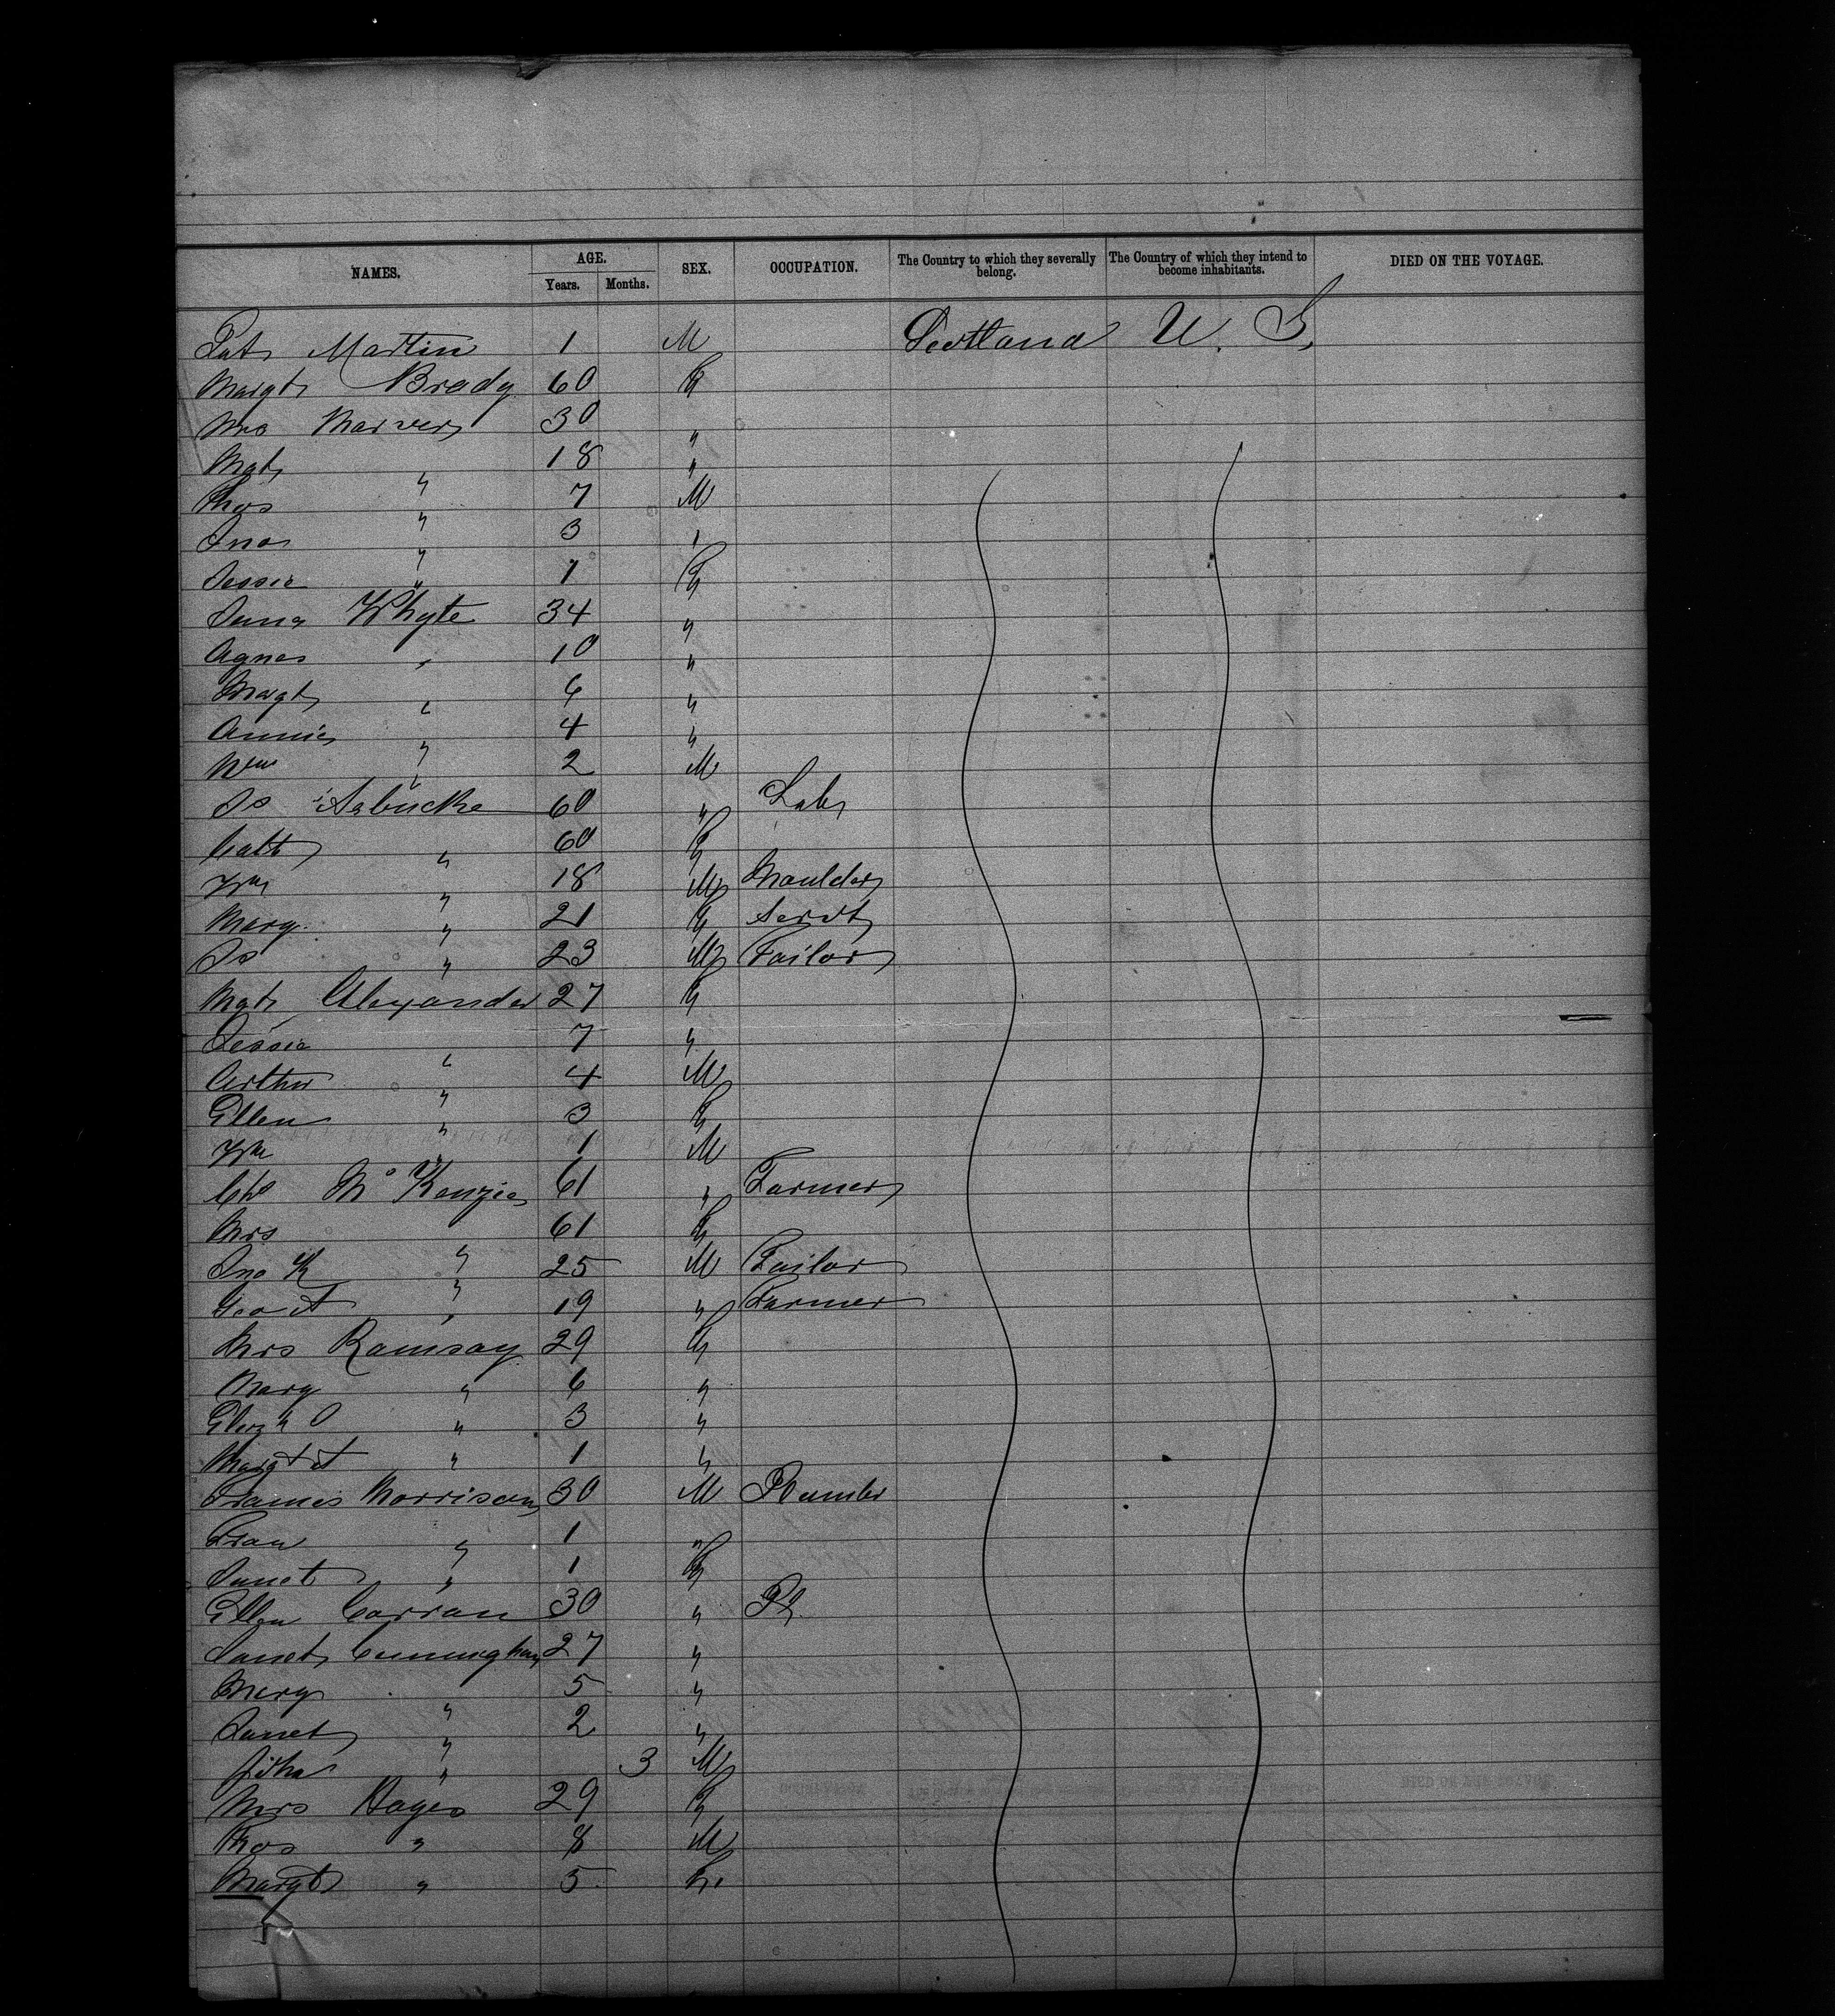 NAMES. AGE. Years. Months. SEX. OCCUPATION. The Country to which they severally belong. The Country of which they intend to become inhabitants. DIED ON THE VOYAGE.
Pat Martin 1 M Scotland U. S.
Margt Brady 60 F
Mrs 30 "
Mgt " 18 "
Thos " 7 M
Jno " 3 "
Jessie " 1 F
Whyte 34 "
Agnes " 10 "
Margt " 6 "
Annie " 4 "
Wm " 2 M
Js Arbuckle 60 " Lab
Cath " 60 F
Wm " 18 M Moulder
Mary " 21 F Servt
Js " 23 M Tailor
Mgt Alexander 27 F
Jessie " 7 "
Arthur " 4 M
Ellen " 3 F
Wm " 1 M
Chs McKenzie 61 " Farmer
Mrs " 61 F
Jno K " 25 M Tailor
Geo A " 19 " Farmer
Mrs Ramsay 29 F
Mary " 6 "
Elizh O " 3 "
Margt A " 1 "
Morrison 30 M Plumber
Fran " 1 "
Janet " 1 F
Ellen Curran 30 "
Janet Cunningham 27 "
Mary " 5 "
Janet " 2 "
" 3 M
Mrs Hayes 29 F
Thos " 8 M
Margt " 5 F